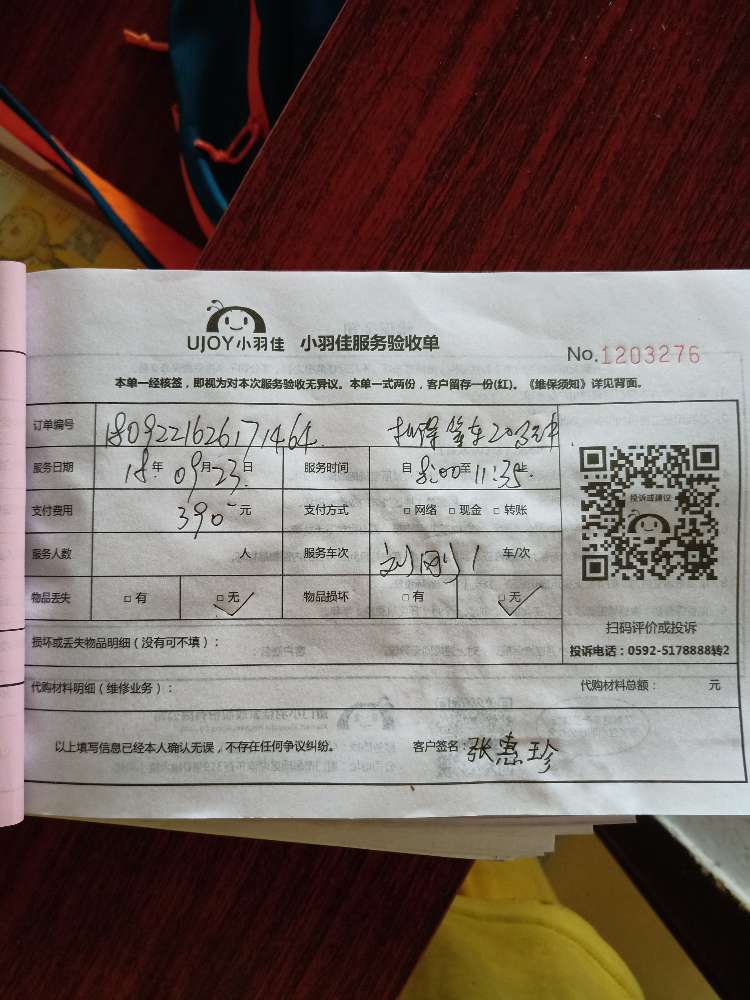 UJOY小羽佳 小羽佳服务验收单
No.1203276
本单一经核签，即视为对本次服务验收无异议。本单一式两份，客户留存一份(红)。《维保须知》详见背面。
订单编号 1809221626171464
服务日期 18年09月23日 服务时间 自8:00至11:35止
支付费用 390元 支付方式 □网络 □现金 □转账
投诉或建议
服务人数 人 服务车次 刘刚1 车/次
物品丢失 □有 □无 物品损坏 □有 □无
扫码评价或投诉
损坏或丢失物品明细（没有可不填）：
投诉电话：0592-5178888转2
代购材料明细（维修业务）： 代购材料总额： 元
以上填写信息已经本人确认无误，不存在任何争议纠纷。 客户签名：张惠珍